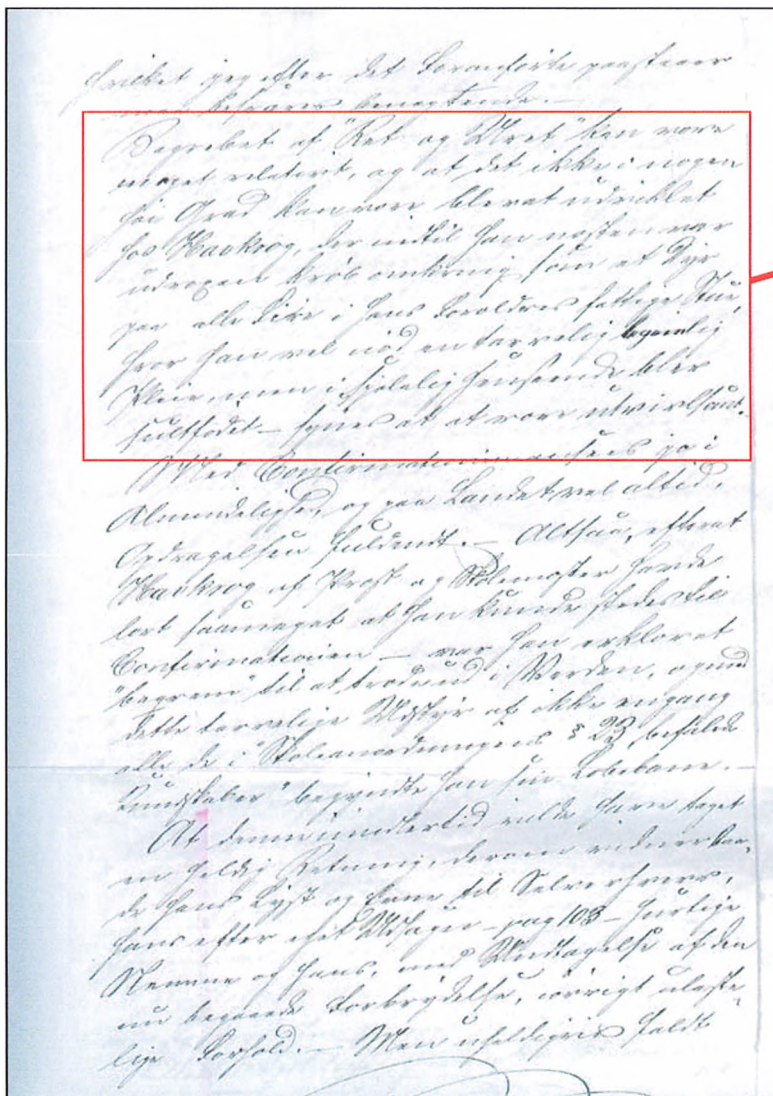 hvilket jeg efter det Foranførte paastaaer
maa besvares benægtende. —
Begrebet af "Ret og Uret" kan være
meget relativt, og at det ikke i nogen
høi Grad kan være blevet udviklet
hos Havkrog, der indtil han næsten var
udvoxen krøb omkring som et Dyr
paa alle Fire i hans Forældres fattige Stue,
hvor han vel nød en tarvelig legemlig
Pleie, men i sjælelig Henseende blev
sultefødet — synes at være utvivlsomt.
Med Confirmationen ansees jo i
Almindelighed, og paa Landet vel altid,
Opdragelsen fuldendt. — Altsaa, efterat
Havkrog af Præst og Skolemester havde
lært saameget at han kunde stedes til
Confirmationen — var han erklæret
"beqvem" til at træde ud i Verden, og med
dette tarvelige Udstyr af ikke engang
alle de i Skoleanordningens § 23 befalede
Kundskaber" begyndte han sin Løbebane. —
At denne imidlertid vilde have taget
en heldig Retning, derom vidner baa-
de hans Lyst og Evne til Selverhverv,
hans efter Udsagn — pag 103 — hurtige
Nemme og hans, med Undtagelse af den
nu begaaede Forbrydelse, iøvrigt ulaste-
lige Forhold. — Men uheldigvis faldt